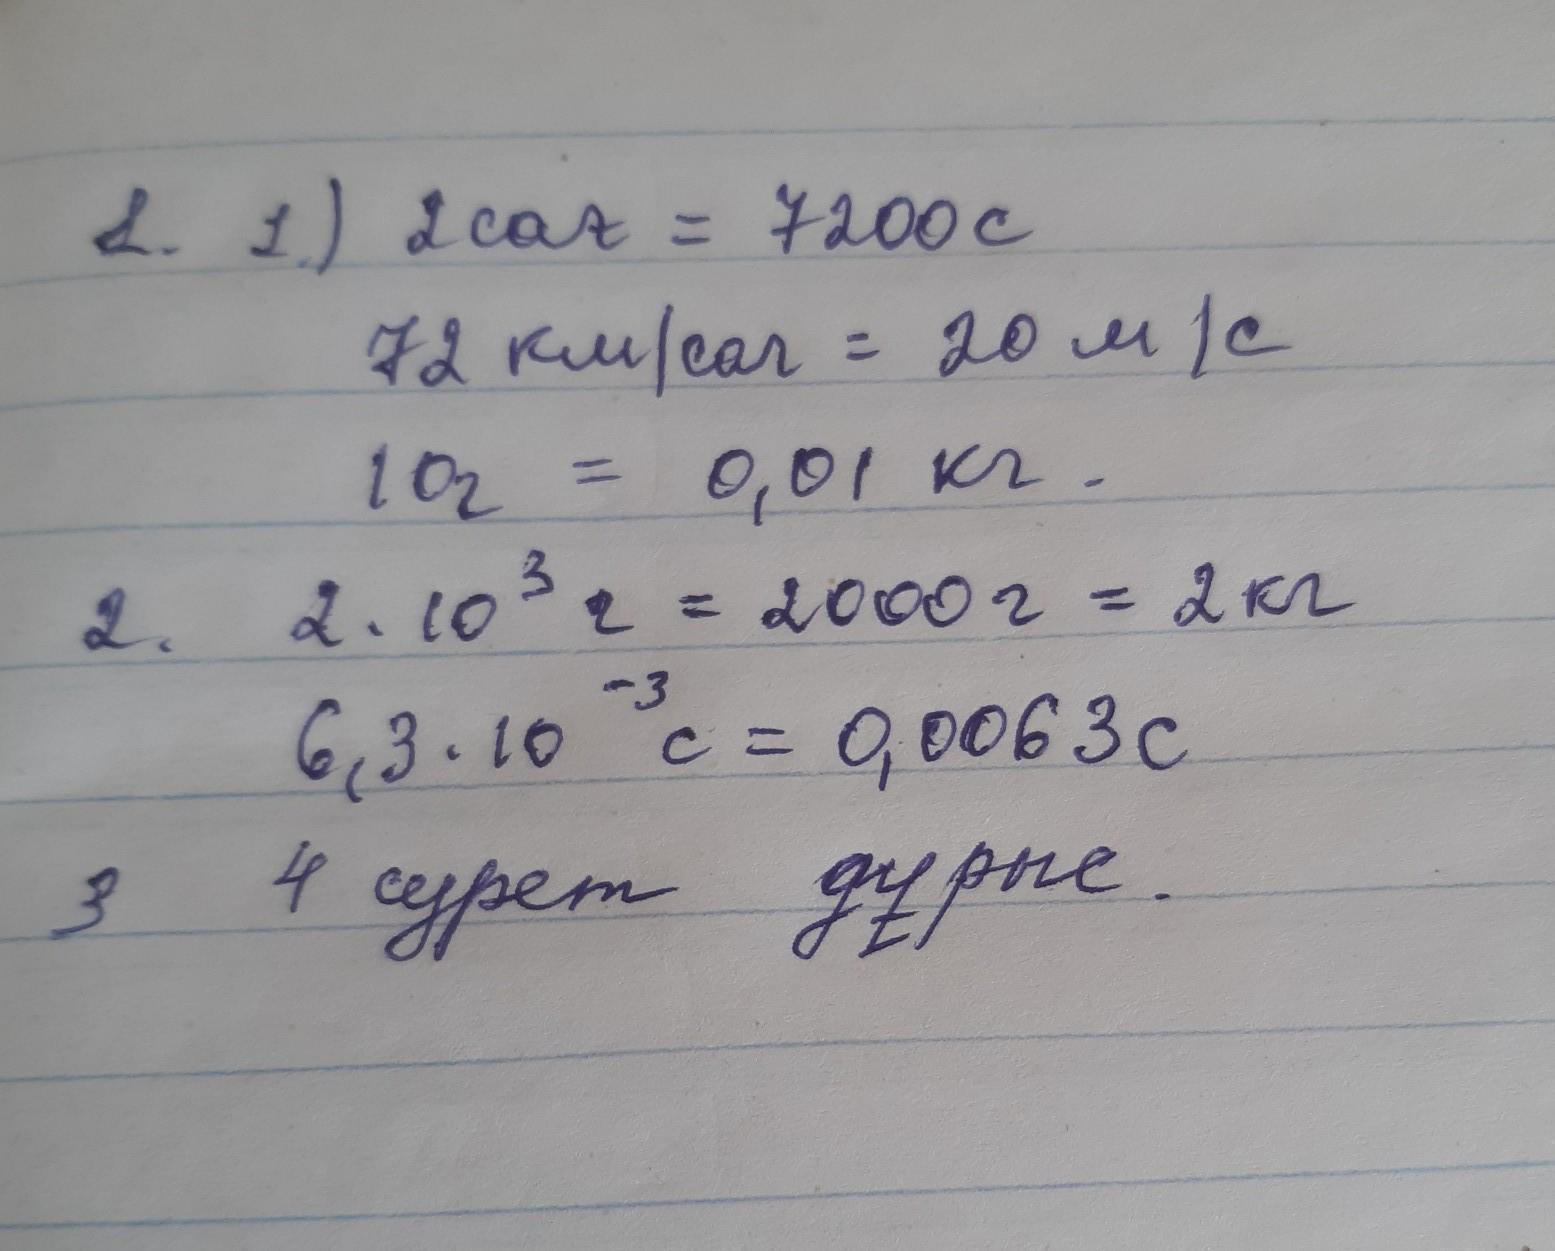 1. 1.) 2 сағ = 7200 с
72 км/сағ = 20 м/с
10г = 0,01 кг.
2. 2·10³ г = 2000 г = 2 кг
6,3·10⁻³ с = 0,0063 с
3 4 сурет дұрыс.